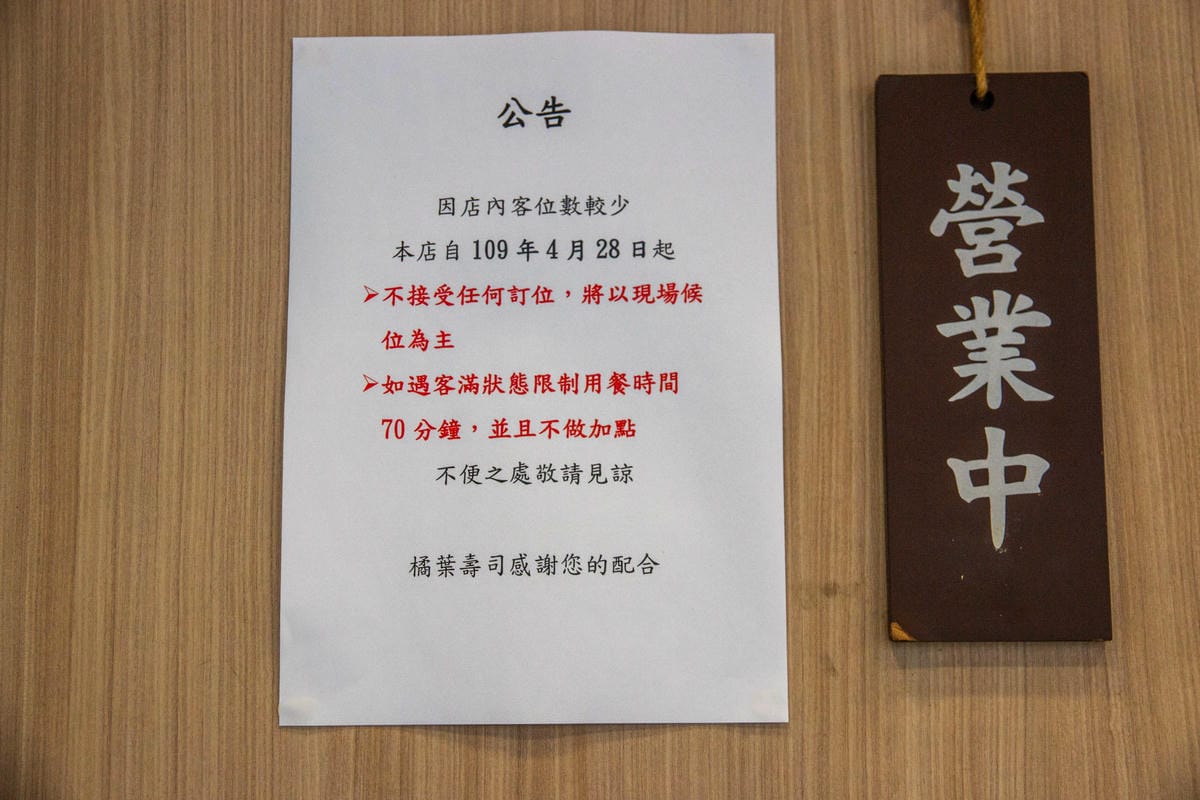 公告
因店內客位數較少
本店自 109 年 4 月 28 日起
➢不接受任何訂位，將以現場候
位為主
➢如遇客滿狀態限制用餐時間
70 分鐘，並且不做加點
不便之處敬請見諒
橘葉壽司感謝您的配合
營業中